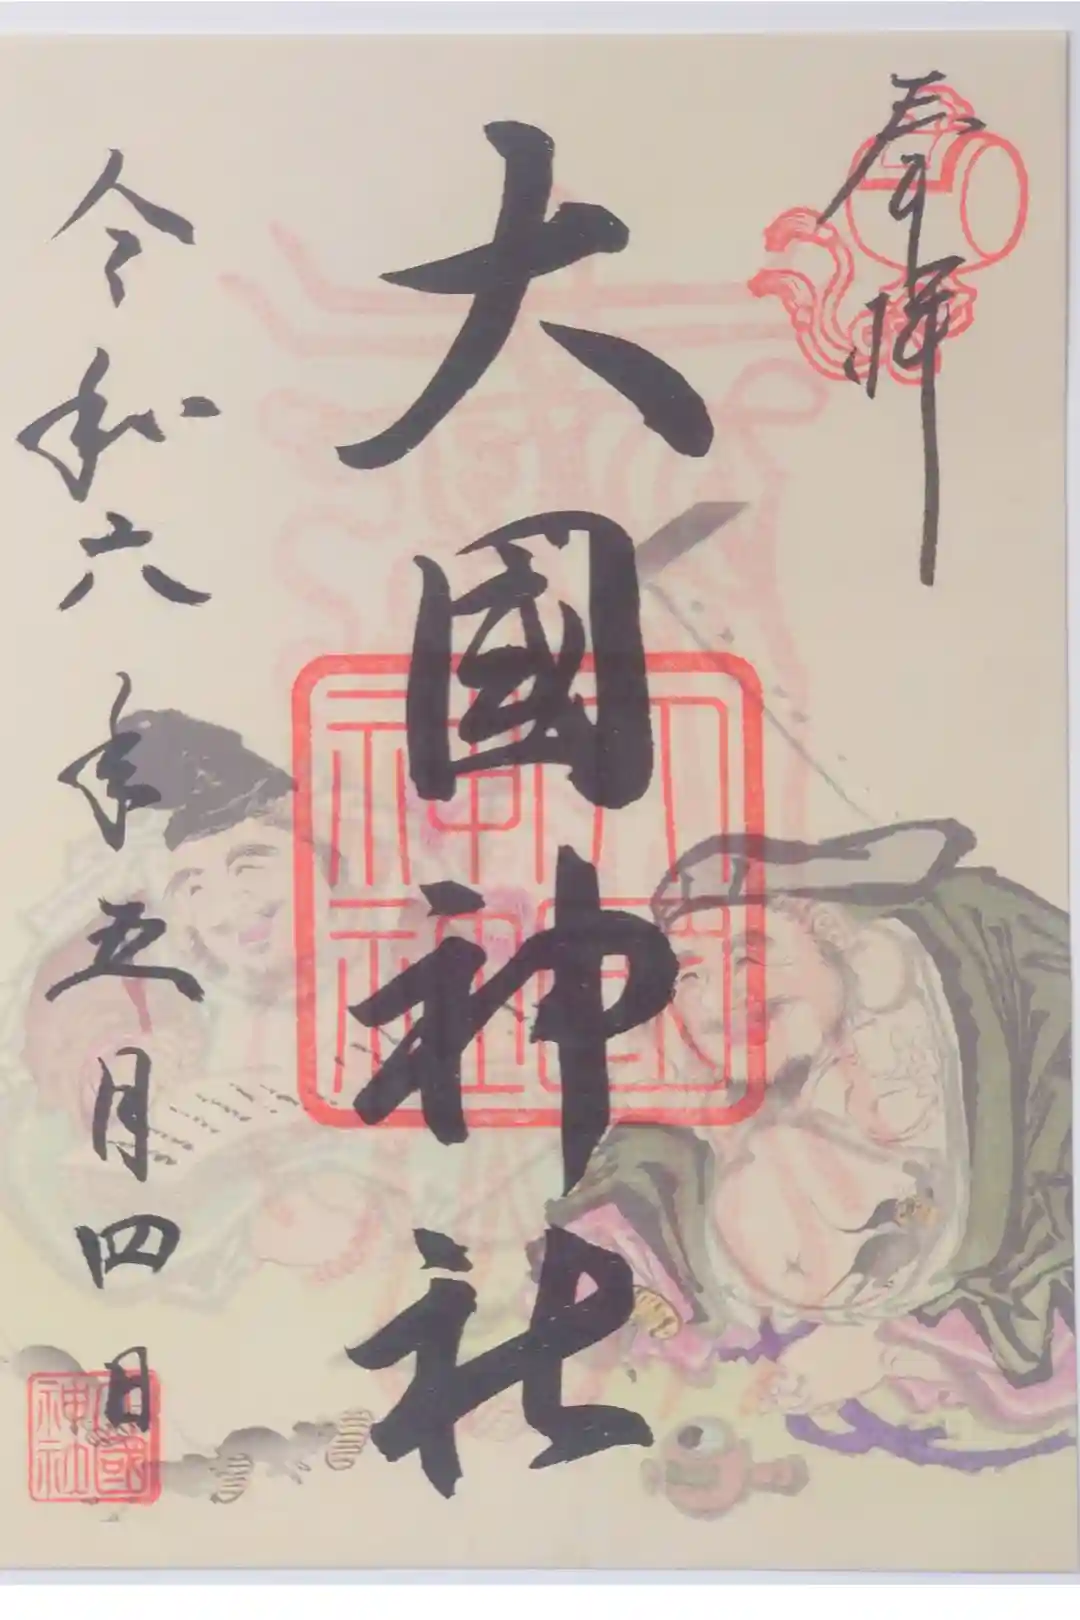 奉拝
大國神社
令和六年五月四日
大國
神社
大國
神社